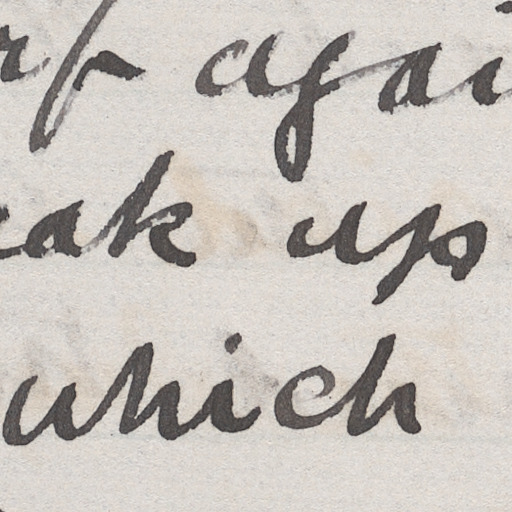 agai
eak up
which